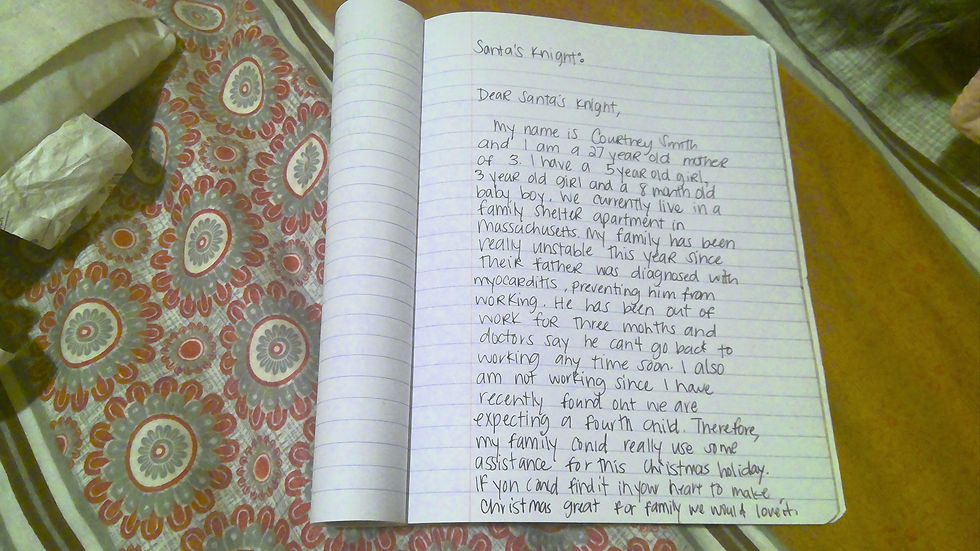 Santa's Knight:
Dear Santa's Knight,
My name is Courtney Smith
and I am a 27 year old mother
of 3. I have a 5 year old girl,
3 year old girl and a 8 month old
baby boy. We currently live in a
family shelter apartment in
Massachusetts. My family has been
really unstable this year since
their father was diagnosed with
myocarditis, preventing him from
working. He has been out of
work for three months and
doctors say he can't go back to
working any time soon. I also
am not working since I have
recently found out we are
expecting a fourth child. Therefore,
my family could really use some
assistance for this Christmas holiday.
If you could find it in your heart to make
Christmas great for family we would love it.